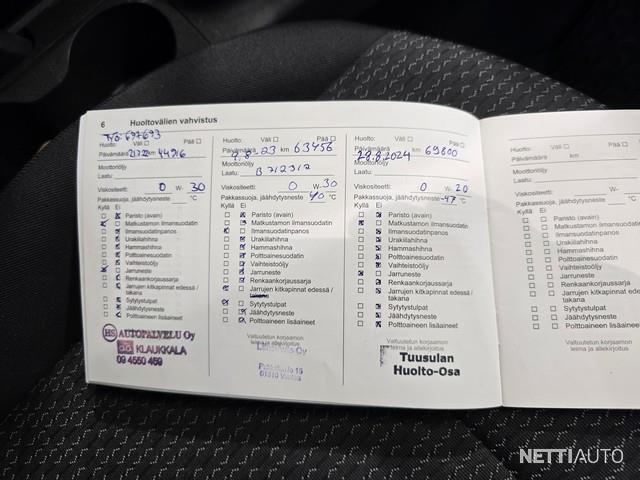 6 Huoltovälien vahvistus
Työ: 697693
Huolto: Väli ☐ Pää ☐
Päivämäärä km 44916
Moottoriöljy
Laatu:
Viskositeetti: 0 W- 30
Pakkassuoja, jäähdytysneste °C
Kyllä Ei
Paristo (avain)
Matkustamon ilmansuodatin
Ilmansuodatinpanos
Urakiilahihna
Hammashihna
Polttoainesuodatin
Vaihteistoöljy
Jarruneste
Renkaankorjaussarja
Jarrujen kitkapinnat edessä /
takana
Sytytystulpat
Jäähdytysneste
Polttoaineen lisäaineet
HS AUTOPALVELU Oy
KLAUKKALA
09 4550 459
Huolto: Väli ☐ Pää ☐
Päivämäärä 9.8.23 km 63456
Moottoriöljy
Laatu: B712312
Viskositeetti: 0 W- 30
Pakkassuoja, jäähdytysneste 40 °C
Kyllä Ei
Paristo (avain)
Matkustamon ilmansuodatin
Ilmansuodatinpanos
Urakiilahihna
Hammashihna
Polttoainesuodatin
Vaihteistoöljy
Jarruneste
Renkaankorjaussarja
Jarrujen kitkapinnat edessä /
takana
Sytytystulpat
Jäähdytysneste
Polttoaineen lisäaineet
Valtuutetun korjaamon
leima ja allekirjoitus
Huolto: Väli ☐ Pää ☐
Päivämäärä 28.8.2024 km 69800
Moottoriöljy
Laatu:
Viskositeetti: 0 W- 20
Pakkassuoja, jäähdytysneste -47 °C
Kyllä Ei
Paristo (avain)
Matkustamon ilmansuodatin
Ilmansuodatinpanos
Urakiilahihna
Hammashihna
Polttoainesuodatin
Vaihteistoöljy
Jarruneste
Renkaankorjaussarja
Jarrujen kitkapinnat edessä /
takana
Sytytystulpat
Jäähdytysneste
Polttoaineen lisäaineet
Valtuutetun korjaamon
leima ja allekirjoitus
Tuusulan
Huolto-Osa
Huolto: Väli ☐
Päivämäärä
Moottoriöljy
Laatu:
Viskositeetti:
Pakkassuoja, jäähdytysneste
Kyllä Ei
Paristo (avain)
Matkustamon ilmansuodatin
Ilmansuodatinpanos
Urakiilahihna
Hammashihna
Polttoainesuodatin
Vaihteistoöljy
Jarruneste
Renkaankorjaussarja
Jarrujen kitkapinnat edessä /
takana
Sytytystulpat
Jäähdytysneste
Polttoaineen lisäaineet
Valtuutetun korjaamon
leima ja allekirjoitus
NETTIAUTO